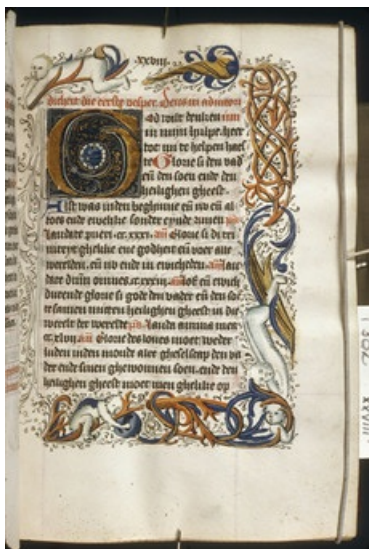 xxviii.
dicheit. die eerste vesper. Deus in
God wilt denken
in mijn hulpe. heer
toe mi te helpen haes
te Glorie si den vad
eñ den soen ende den
heilighen gheest
Als was inden beghinne eñ nu eñ al
toes ende ewelike sonder eynde amen ps
laudate pueri. añ Glorie si di tri
niteyt ghelike ene godheit eñ voer alle
werelden. eñ nu ende in ewicheden. añ lau
date omnes. añ lof eñ ewich
durende glorie si gode den vader eñ den soe
te samen mitten heilighen gheest in die
werelt der werelde ps lauda anima mea
añ Glorie des loues moet weder
luden inden monde alre gheselscap den va
der ende sinen ghewonnen soen. ende den
heilighen gheest moet men ghelike op
XXVIII